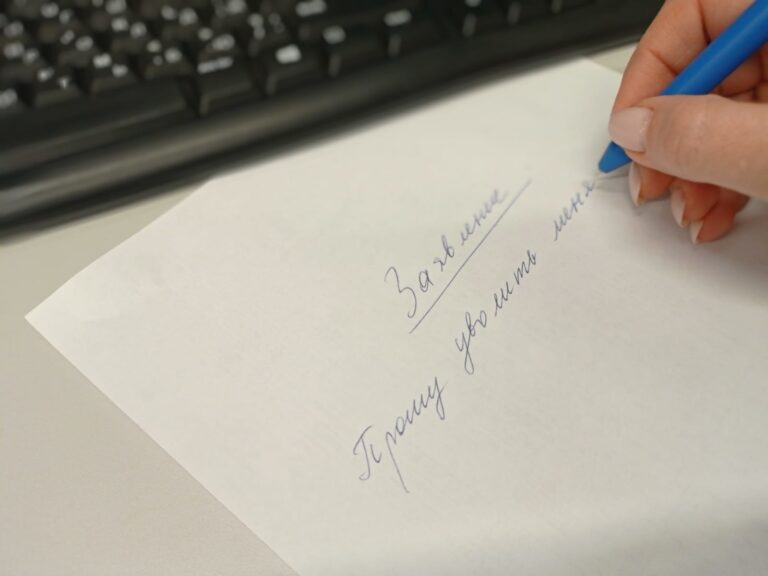 Заявление
Прошу уволить меня